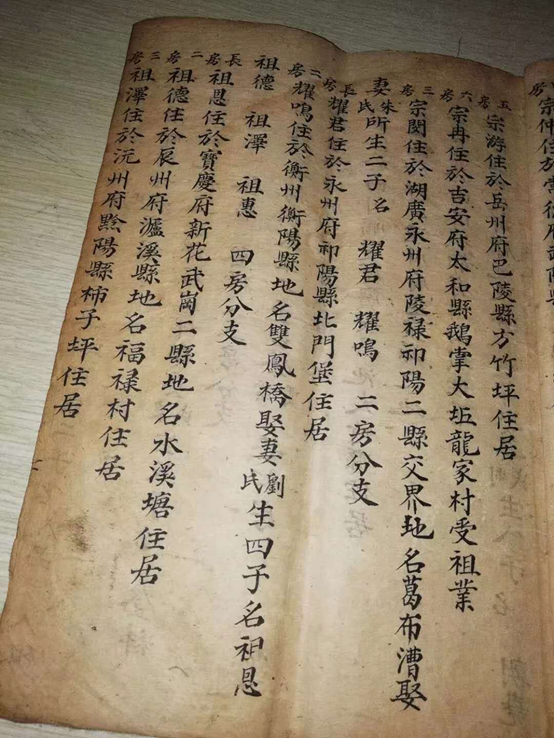 房宗仲住於常德府武陵縣
五房宗游住於岳州府巴陵縣方竹坪住居
六房宗冉住於吉安府太和縣鵝掌大坵龍家村受祖業
三房宗閔住於湖廣永州府陵禄祁陽二縣交界地名葛布漕娶
妻朱氏所生二子名 耀君 耀鳴 二房分支
長房耀君住於永州府祁陽縣北門堡住居
二房耀鳴住於衡州衡陽縣地名雙鳳橋娶妻劉氏生四子名祖恩
祖德 祖澤 祖惠 四房分支
長房祖恩住於寶慶府新花武崗二縣地名水溪塘住居
二房祖德住於辰州府瀘溪縣地名福禄村住居
三房祖澤住於沅州府黔陽縣柿子坪住居